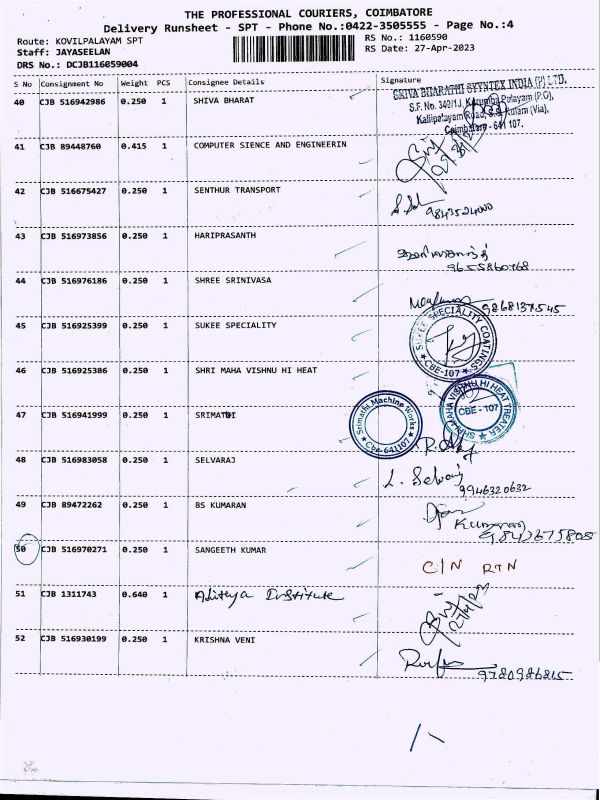 THE PROFESSIONAL COURIERS, COIMBATORE
Delivery Runsheet - SPT - Phone No.:0422-3505555 - Page No.:4
Route: KOVILPALAYAM SPT
Staff: JAYASEELAN
DRS No.: DCJB116059004
RS No.: 1160590
RS Date: 27-Apr-2023
S No Consignment No Weight PCS Consignee Details Signature
40 CJB 516942986 0.250 1 SHIVA BHARAT
SHIVA BHARATHI SYYNTEX INDIA (P) LTD.
S.F. No. 349/1J, Karumba Palayam (P.O),
Kalipalayam Road, S.S. Kulam (Via),
Coimbatore - 641 107.
41 CJB 89448760 0.415 1 COMPUTER SIENCE AND ENGINEERIN
42 CJB 516675427 0.250 1 SENTHUR TRANSPORT
9843524000
43 CJB 516973856 0.250 1 HARIPRASANTH
9655860768
44 CJB 516976186 0.250 1 SHREE SRINIVASA
9868137545
45 CJB 516925399 0.250 1 SUKEE SPECIALITY
SUKEE SPECIALITY COATINGS
CBE-107
46 CJB 516925386 0.250 1 SHRI MAHA VISHNU HI HEAT
SHRI MAHA VISHNU HI HEAT TREATER
CBE - 107
47 CJB 516941999 0.250 1 SRIMATDI
Srimathi Machine Works
Cbe-641107
48 CJB 516983058 0.250 1 SELVARAJ
L. Selvaraj
9946320632
49 CJB 89472262 0.250 1 BS KUMARAN
Kumaran
9843675805
50 CJB 516970271 0.250 1 SANGEETH KUMAR
C/N RTN
51 CJB 1311743 0.640 1 Adithya Institute
27/4/23
52 CJB 516930199 0.250 1 KRISHNA VENI
9780986815